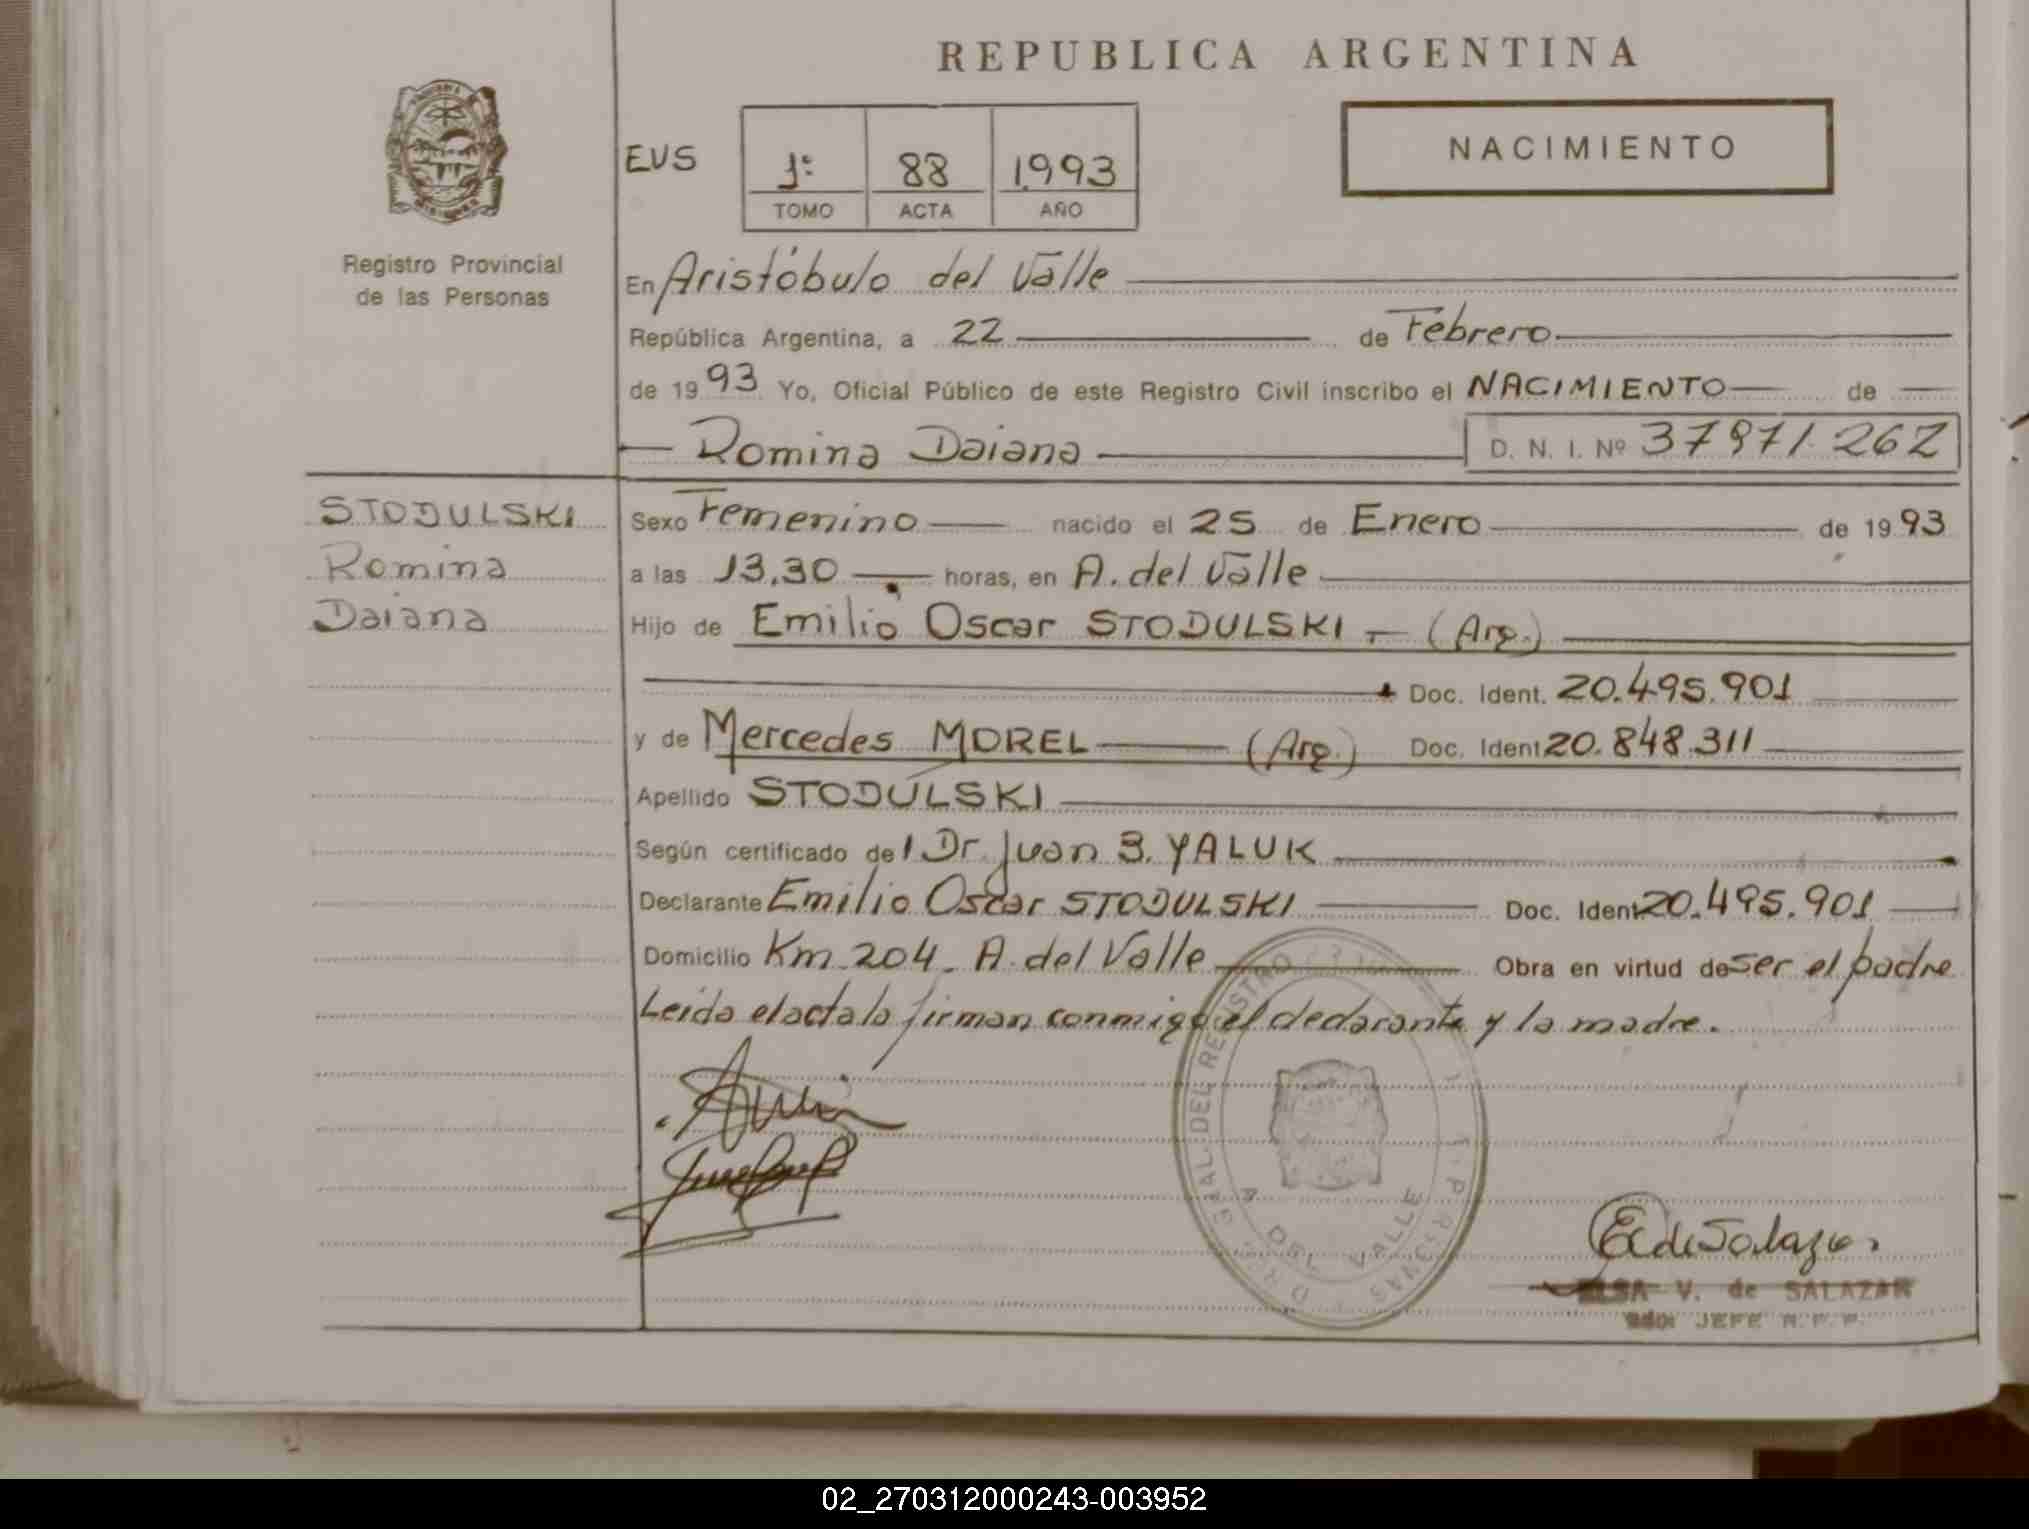 REPUBLICA ARGENTINA
NACIMIENTO
EVS
1: 88 1.993
TOMO ACTA AÑO
Registro Provincial
de las Personas
En Aristóbulo del Valle
República Argentina, a 22 de Febrero
de 19 93 Yo, Oficial Público de este Registro Civil inscribo el NACIMIENTO de
Romina Daiana D. N. I. Nº 37971.262
STODULSKI
Romina
Daiana
Sexo Femenino nacido el 25 de Enero de 19 93
a las 13.30 horas, en A. del Valle
Hijo de Emilio Oscar STODULSKI (Arg.)
Doc. Ident. 20.495.901
y de Mercedes MOREL (Arg.) Doc. Ident 20.848.311
Apellido STODULSKI
Según certificado de l Dr. Juan B. YALUK
Declarante Emilio Oscar STODULSKI Doc. Ident 20.495.901
Domicilio Km. 204. A. del Valle Obra en virtud de ser el padre
Leida el acta la firman conmigo el declarante y la madre.
DEL REGISTRO
A DEL VALLE
E. de Salazar
ELSA V. de SALAZAR
JEFE R.P.P.
02_270312000243-003952